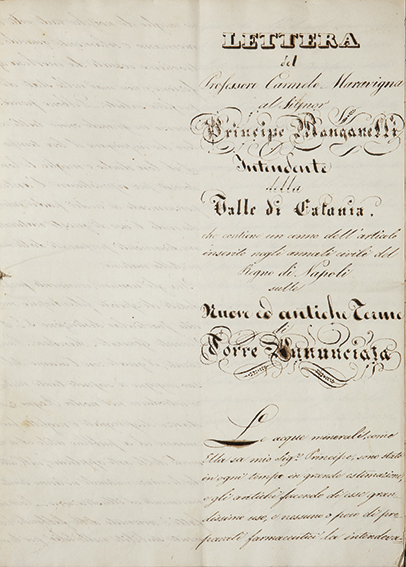 LETTERA
del
Professore Carmelo Maravigna
al Signor
Principe Manganelli
Intendente
della
Valle di Catania.
che contiene un cenno dell'articolo
inserito negli annali civili del
Regno di Napoli
sulle
Nuove ed antiche Terme
di
Torre Annunciata
Le acque minerali, come
Ella sa mio Sig.r Principe, sono state
in ogni tempo in grande estimazione,
e gli antichi facendo di esse gran-
dissimo uso, e nessuno o poco di pre-
parati farmaceutici la intendeva-